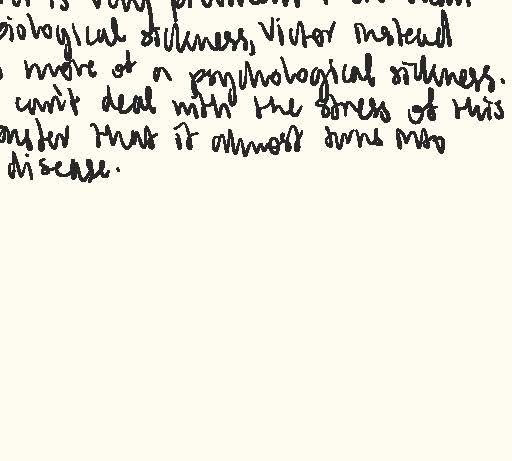 is very
biological sickness, Victor instead
more of a psychological sickness.
can't deal with the stress of this
monster that it almost turns into
disease.